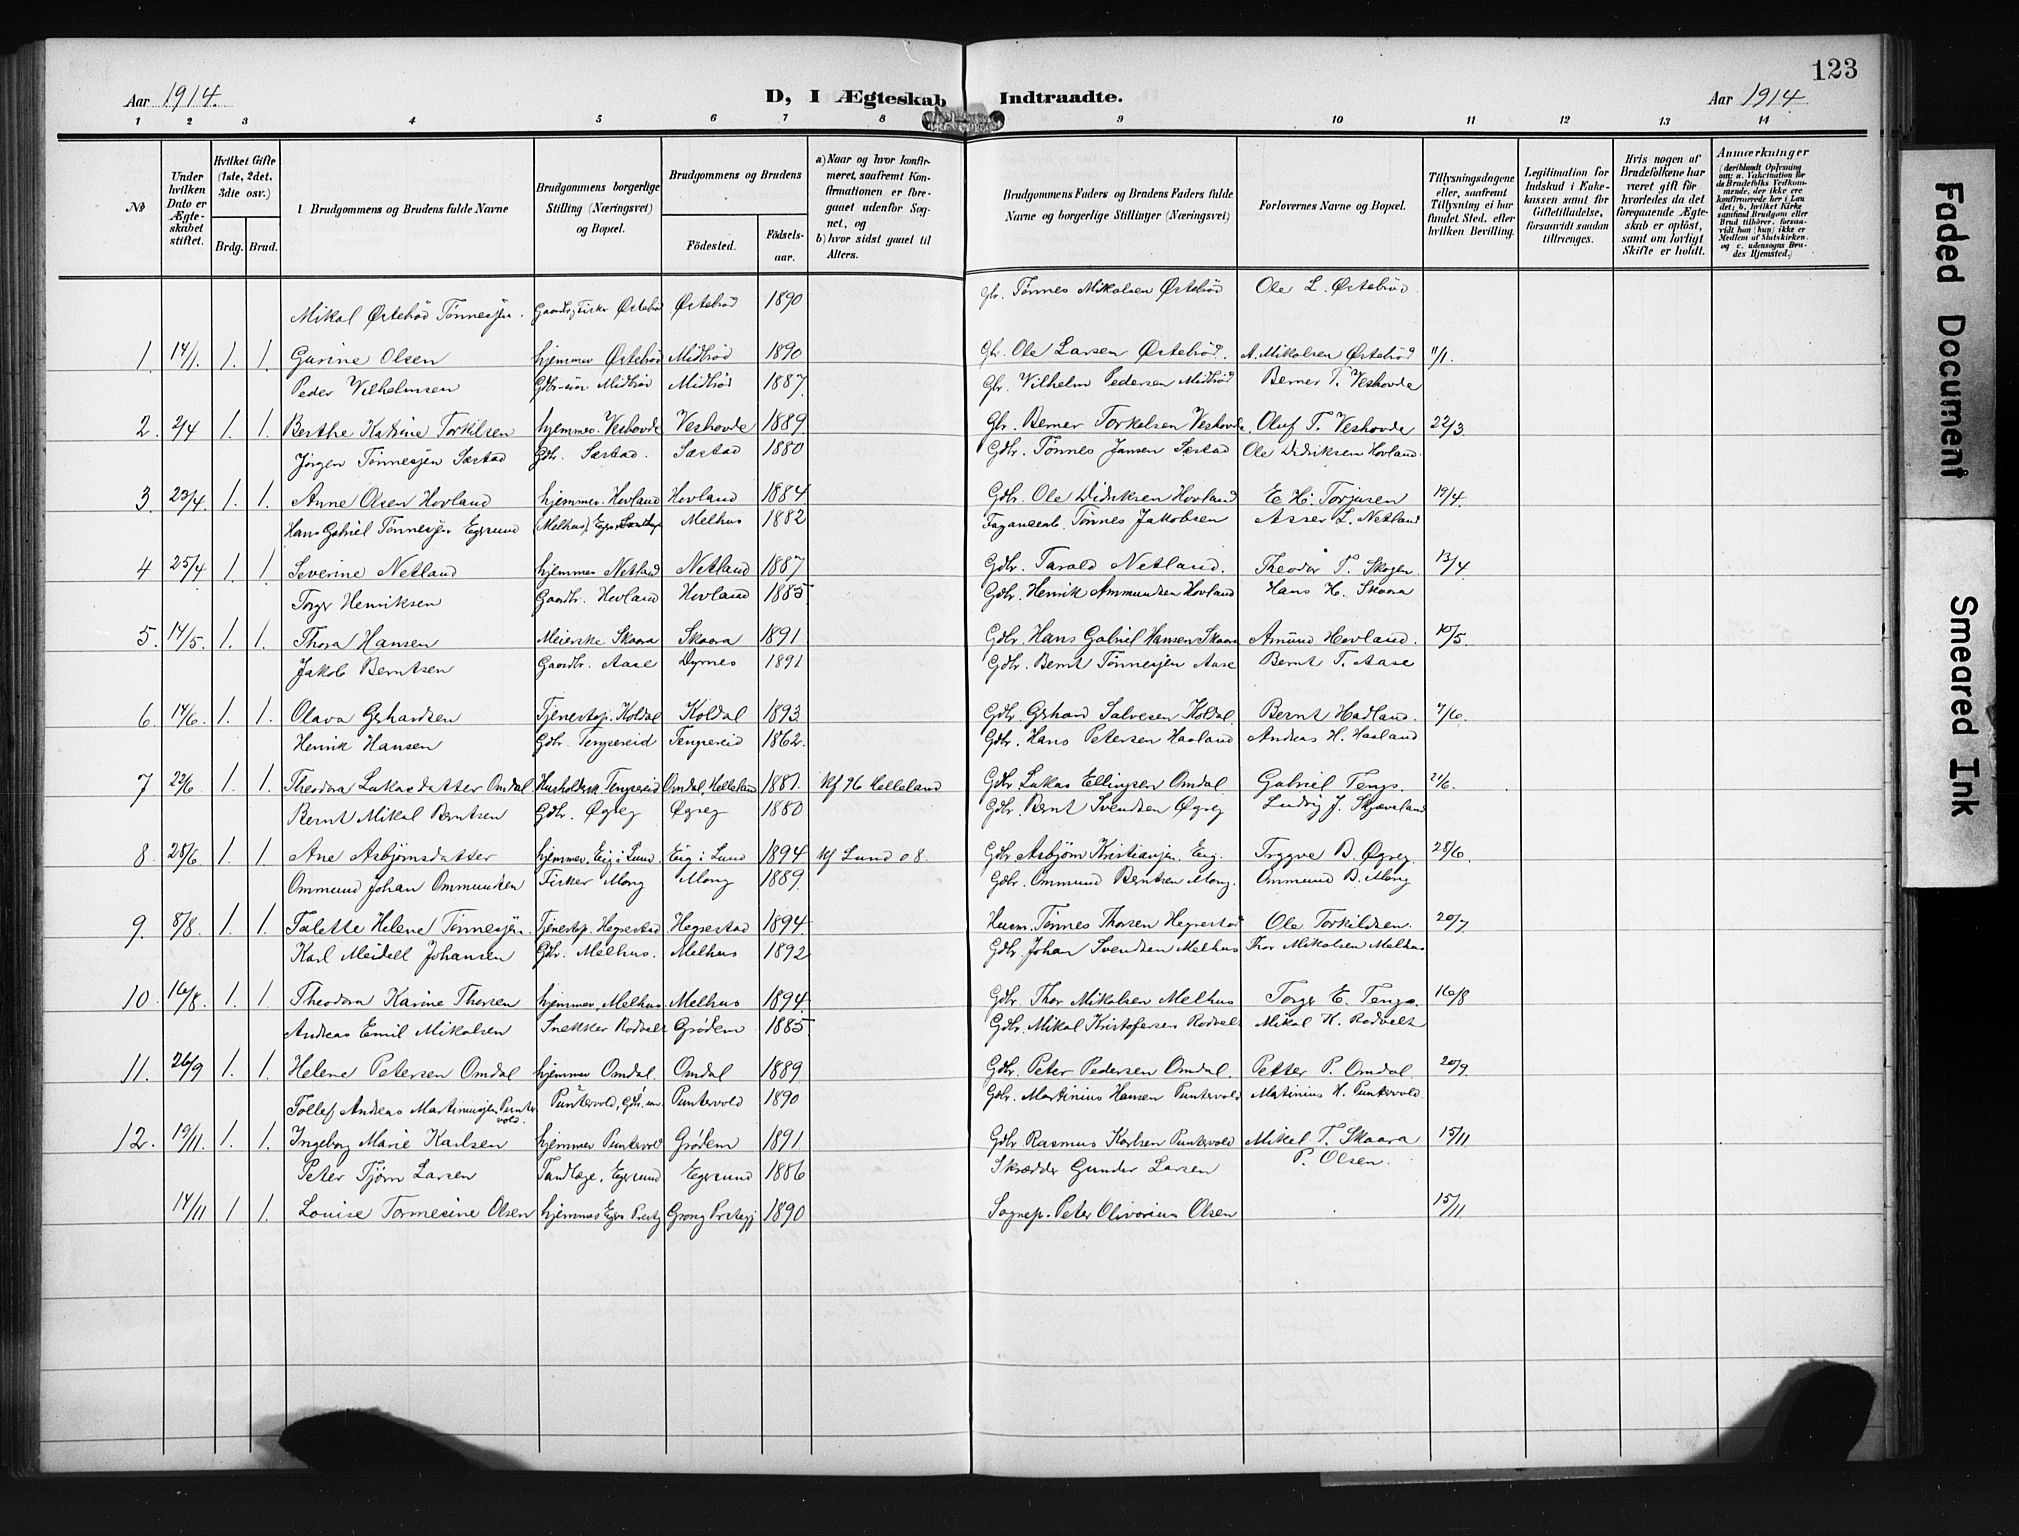 123
Aar 1914.
D, I Ægteskab Indtraadte.
Aar 1914
1 2 3 4 5 6 7 8 9 10 11 12 13 14
№
Under hvilken Dato er Ægteskabet stiftet.
Hvilket Gifte (1ste, 2det, 3die osv.)
Brdg. Brud.
Brudgommens og Brudens fulde Navne
Brudgommens borgerlige Stilling (Næringsvei) og Bopæl.
Brudgommens og Brudens
Fødested. Fødselsaar.
a) Naar og hvor konfirmeret, saafremt Konfirmationen er foregaaet udenfor Sognet, og
b) hvor sidst gaaet til Alters.
Brudgommens Faders og Brudens Faders fulde Navne og borgerlige Stillinger (Næringsvei)
Forlovernes Navne og Bopæl.
Tillysningsdagene eller, saafremt Tillysning ei har fundet Sted, efter hvilken Bevilling.
Legitimation for Indskud i Enkekassen samt for Giftetilladelse, forsaavidt saadan tiltrænges.
Hvis nogen af Brudefolkene har været gift før hvorledes da det foregaaende Ægteskab er opløst, samt om lovligt Skifte er holdt.
Anmærkninger
(deriblandt Oplysning om: a. Vakcination for de Brudefolks Vedkommende, der ikke ere konfirmerede her i Landet; b. hvilket Kirkesamfund Brudgom eller Brud tilhører, forsaavidt han (hun) ikke er Medlem af Statskirken, og c. udensogns Brudes Hjemsted.)
Mikal Østebød Tønnesen. Gaardbr, Fisker Østebød Østebrød 1890 Gbr. Tønnes Mikalsen Østebrød Ole L. Østebrød
1. 14/1. 1. 1. Gurine Olsen hjemmev Østebrød Midbrød 1890 Gbr. Ole Larsen Østebrød. A. Mikalsen Østebrød 11/1.
Peder Vilhelmsen Gdbr-søn Midbrød Midbrød 1887. Gbr. Vilhelm Pedersen Midbrød Berner T. Veshovde
2. 2/4 1. 1. Berthe Katrine Torkilsen hjemmev. Veshovde Veshovde 1889 Gbr. Berner Torkelsen Veshovde Oluf T. Veshovde 22/3.
Jørgen Tønnesen Sæstad Gdbr. Sæstad. Sæstad 1880 Gdbr. Tønnes Jansen Sæstad Ole Didriksen Hovland.
3. 23/4 1. 1. Anne Olsen Hovland hjemmev. Hovland Hovland 1884 Gdbr. Ole Didriksen Hovland E. H. Torjusen 19/4.
Hans Gabriel Tønnesen Egersund Melhus 1882 Tønnes Jakobsen Asser L. Netland
4 25/4 1. 1. Severine Netland hjemmev Netland Netland 1887 Gdbr. Tarald Netland. Theodor T. Skogen. 13/4
Torger Henriksen Gaardbr. Hovland Hovland 1885. Gdbr. Henrik Ammundsen Hovland Hans H. Skaara
5. 14/5. 1. 1. Thora Hansen Meierske Skaara Skaara 1891 Gdbr. Hans Gabriel Hansen Skaara Amund Hovland. 10/5.
Jakob Berntsen Gaardbr. Aase Dyrnes 1891 Gdbr. Bernt Tønnesen Aase Bernt T. Aase
6. 14/6. 1. 1. Olava Gerhardsen Tjenestep. Koldal Koldal 1893 Gdbr Gerhard Salvesen Koldal Bernt Hadland. 7/6.
Henrik Hansen Gdbr. Tengereid Tengereid 1862. Gdbr. Hans Petersen Haaland Andreas H. Haaland
7 22/6 1. 1. Theodora Lukasdatter Omdal Husholdersk. Tengereid Omdal, Helleland 1881. Kf 96 Helleland Gdbr Lukas Ellingsen Omdal Gabriel Tengs. 21/6.
Bernt Mikal Berntsen Gdbr. Øgrey Øgrey 1880 Gdbr. Bernt Svendsen Øgrey Ludvig J. Skjæveland
8. 28/6 1. 1. Ane Asbjørnsdatter hjemmev. Eig i Lund. Eig i Lund 1894 Kf Lund 08. Gdbr Asbjørn Kristiansen. Eig. Trygve B. Øgrey. 28/6.
Ommund Johan Ommundsen Fisker Mong Mong 1889. Gdbr. Ommund Berntsen Mong. Ommund B. Mong
9. 8/8. 1. 1. Talette Helene Tønnesen. Tjenestep. Hegrestad Hegrestad 1894. Husm. Tønnes Thorsen Hegrestad Ole Torkildsen. 20/7
Karl Meidell Johansen Gdbr. Melhus. Melhus 1892 Gdbr. Johan Svendsen Melhus Thor Mikalsen Melhus
10. 16/8. 1. 1. Theodora Karine Thorsen hjemmev. Melhus Melhus 1894. Gdbr. Thor Mikalsen Melhus Torger E. Tengs. 16/8
Andreas Emil Mikalsen Snekker Rodvelt Grødem 1885 Gdbr. Mikal Kristofersen Rodvelt Mikal K. Rodvelt
11. 26/9 1. 1. Helene Petersen Omdal hjemmev Omdal. Omdal 1889 Gdbr. Peter Pedersen Omdal. Petter P. Omdal. 20/9.
Tollef Andreas Martinusen Puntervold. Puntervold, Gdbr. Puntervold 1890 Gdbr. Martinius Hansen Puntervold Martinius H. Puntervold.
12. 19/11. 1. 1. Ingeborg Marie Karlsen hjemmev Puntervold Grødem 1891. Gdbr Rasmus Karlsen Puntervold Mikal T. Skaara 15/11
Peter Tjørn Larsen Tandlæge, Egersund Egersund 1886 Skrædder Gunder Larsen P. Olsen.
14/11 1 1. Louise Tormesine Olsen hjemmev Egers. Prestg Grong Prstegj 1890 Sognep. Peter Olivarius Olsen 15/11.
Faded Document
Smeared Ink